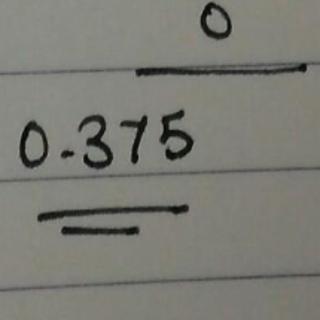 0
0.375